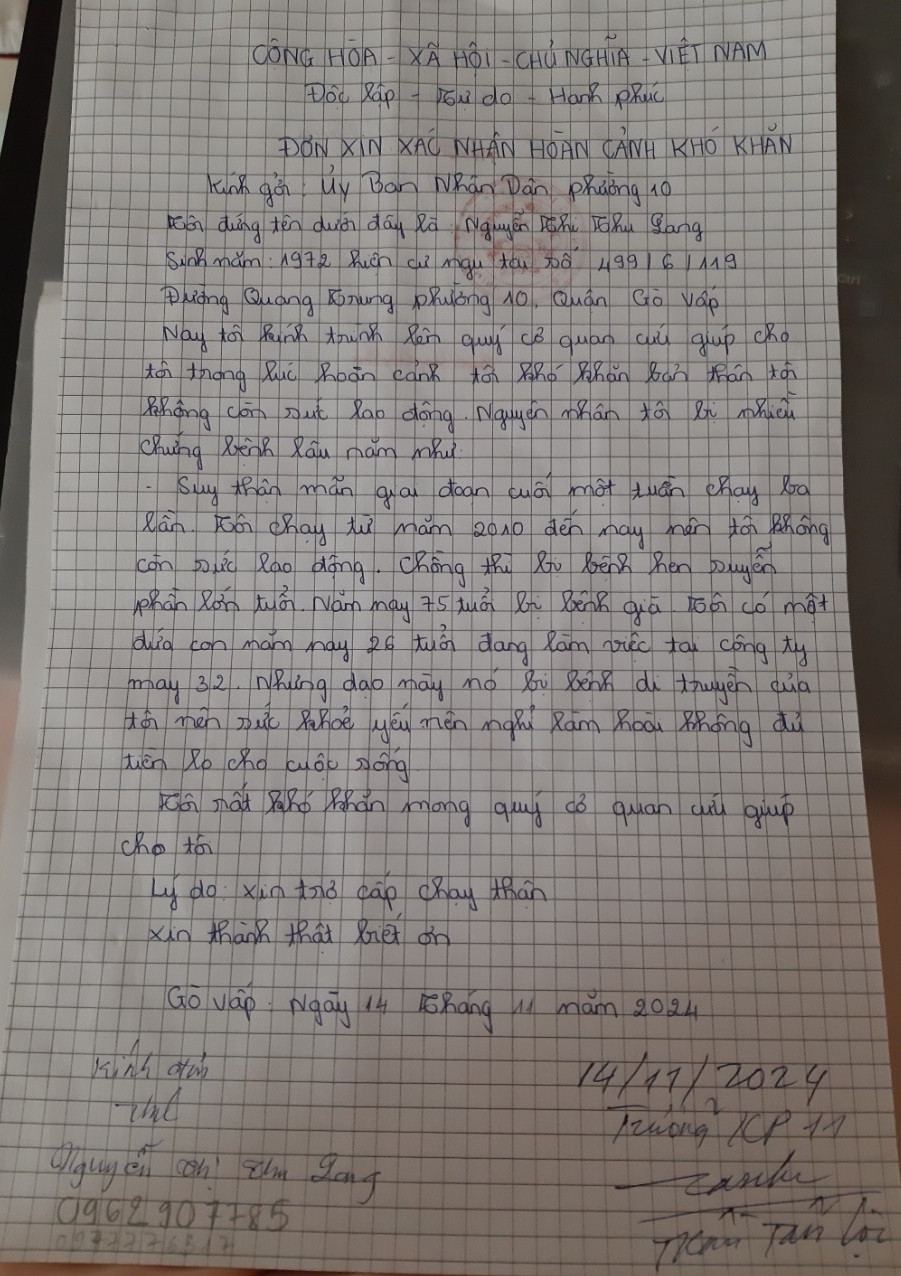 CÔNG HÒA - XÃ HỘI - CHỦ NGHĨA - VIỆT NAM
Độc lập - Tự do - Hạnh phúc
ĐƠN XIN XÁC NHẬN HOÀN CẢNH KHÓ KHĂN
Kính gởi: Ủy Ban Nhân Dân phường 10
Tôi đứng tên dưới đây là: Nguyễn Thị Thu Gang
Sinh năm: 1972 hiện cư ngụ tại số 499/6/119
Đường Quang Trung phường 10, Quận Gò Vấp
Nay tôi kính trình lên quý cơ quan cứu giúp cho
tôi trong lúc hoàn cảnh tôi khó khăn bản thân tôi
không còn sức lao động. Nguyên nhân tôi bị nhiều
chứng bệnh lâu năm như:
- Suy thận mãn giai đoạn cuối một tuần chạy ba
lần. Tôi chạy từ năm 2010 đến nay nên tôi không
còn sức lao động. Chồng thì bị bệnh hen suyễn
phần lớn tuổi. Năm nay 75 tuổi bị bệnh già. Tôi có một
đứa con năm nay 26 tuổi đang làm việc tại công ty
may 32. Nhưng dạo nầy nó bị bệnh di truyền của
tôi nên sức khoẻ yếu nên nghỉ làm hoài không đủ
tiền lo cho cuộc sống
Tôi rất khó khăn mong quý cơ quan cứu giúp
cho tôi
Lý do: xin trợ cấp chạy thận
Xin thành thật biết ơn
Gò Vấp. Ngày 14 Tháng 11 năm 2024
Kính đơn
14/11/2024
Trưởng KP 11
Nguyễn Thị Thu Gang
0962907785
Trần Tấn Lộc